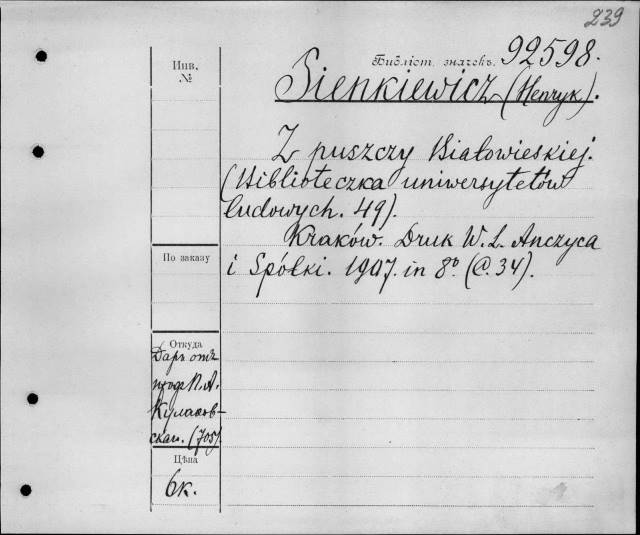 239
Инв.
№
Библіот. значекъ. 92598.
Sienkiewicz (Henryk).
Z puszczy Białowieskiej.
(Biblioteczka uniwersytetów
ludowych. 49).
Kraków. Druk W. L. Anczyca
i Spółki. 1907. in 8° (C. 34).
По заказу
Откуда
Даръ отъ
проф. П. А.
Кулаков-
скаго. (705).
Цѣна
6к.